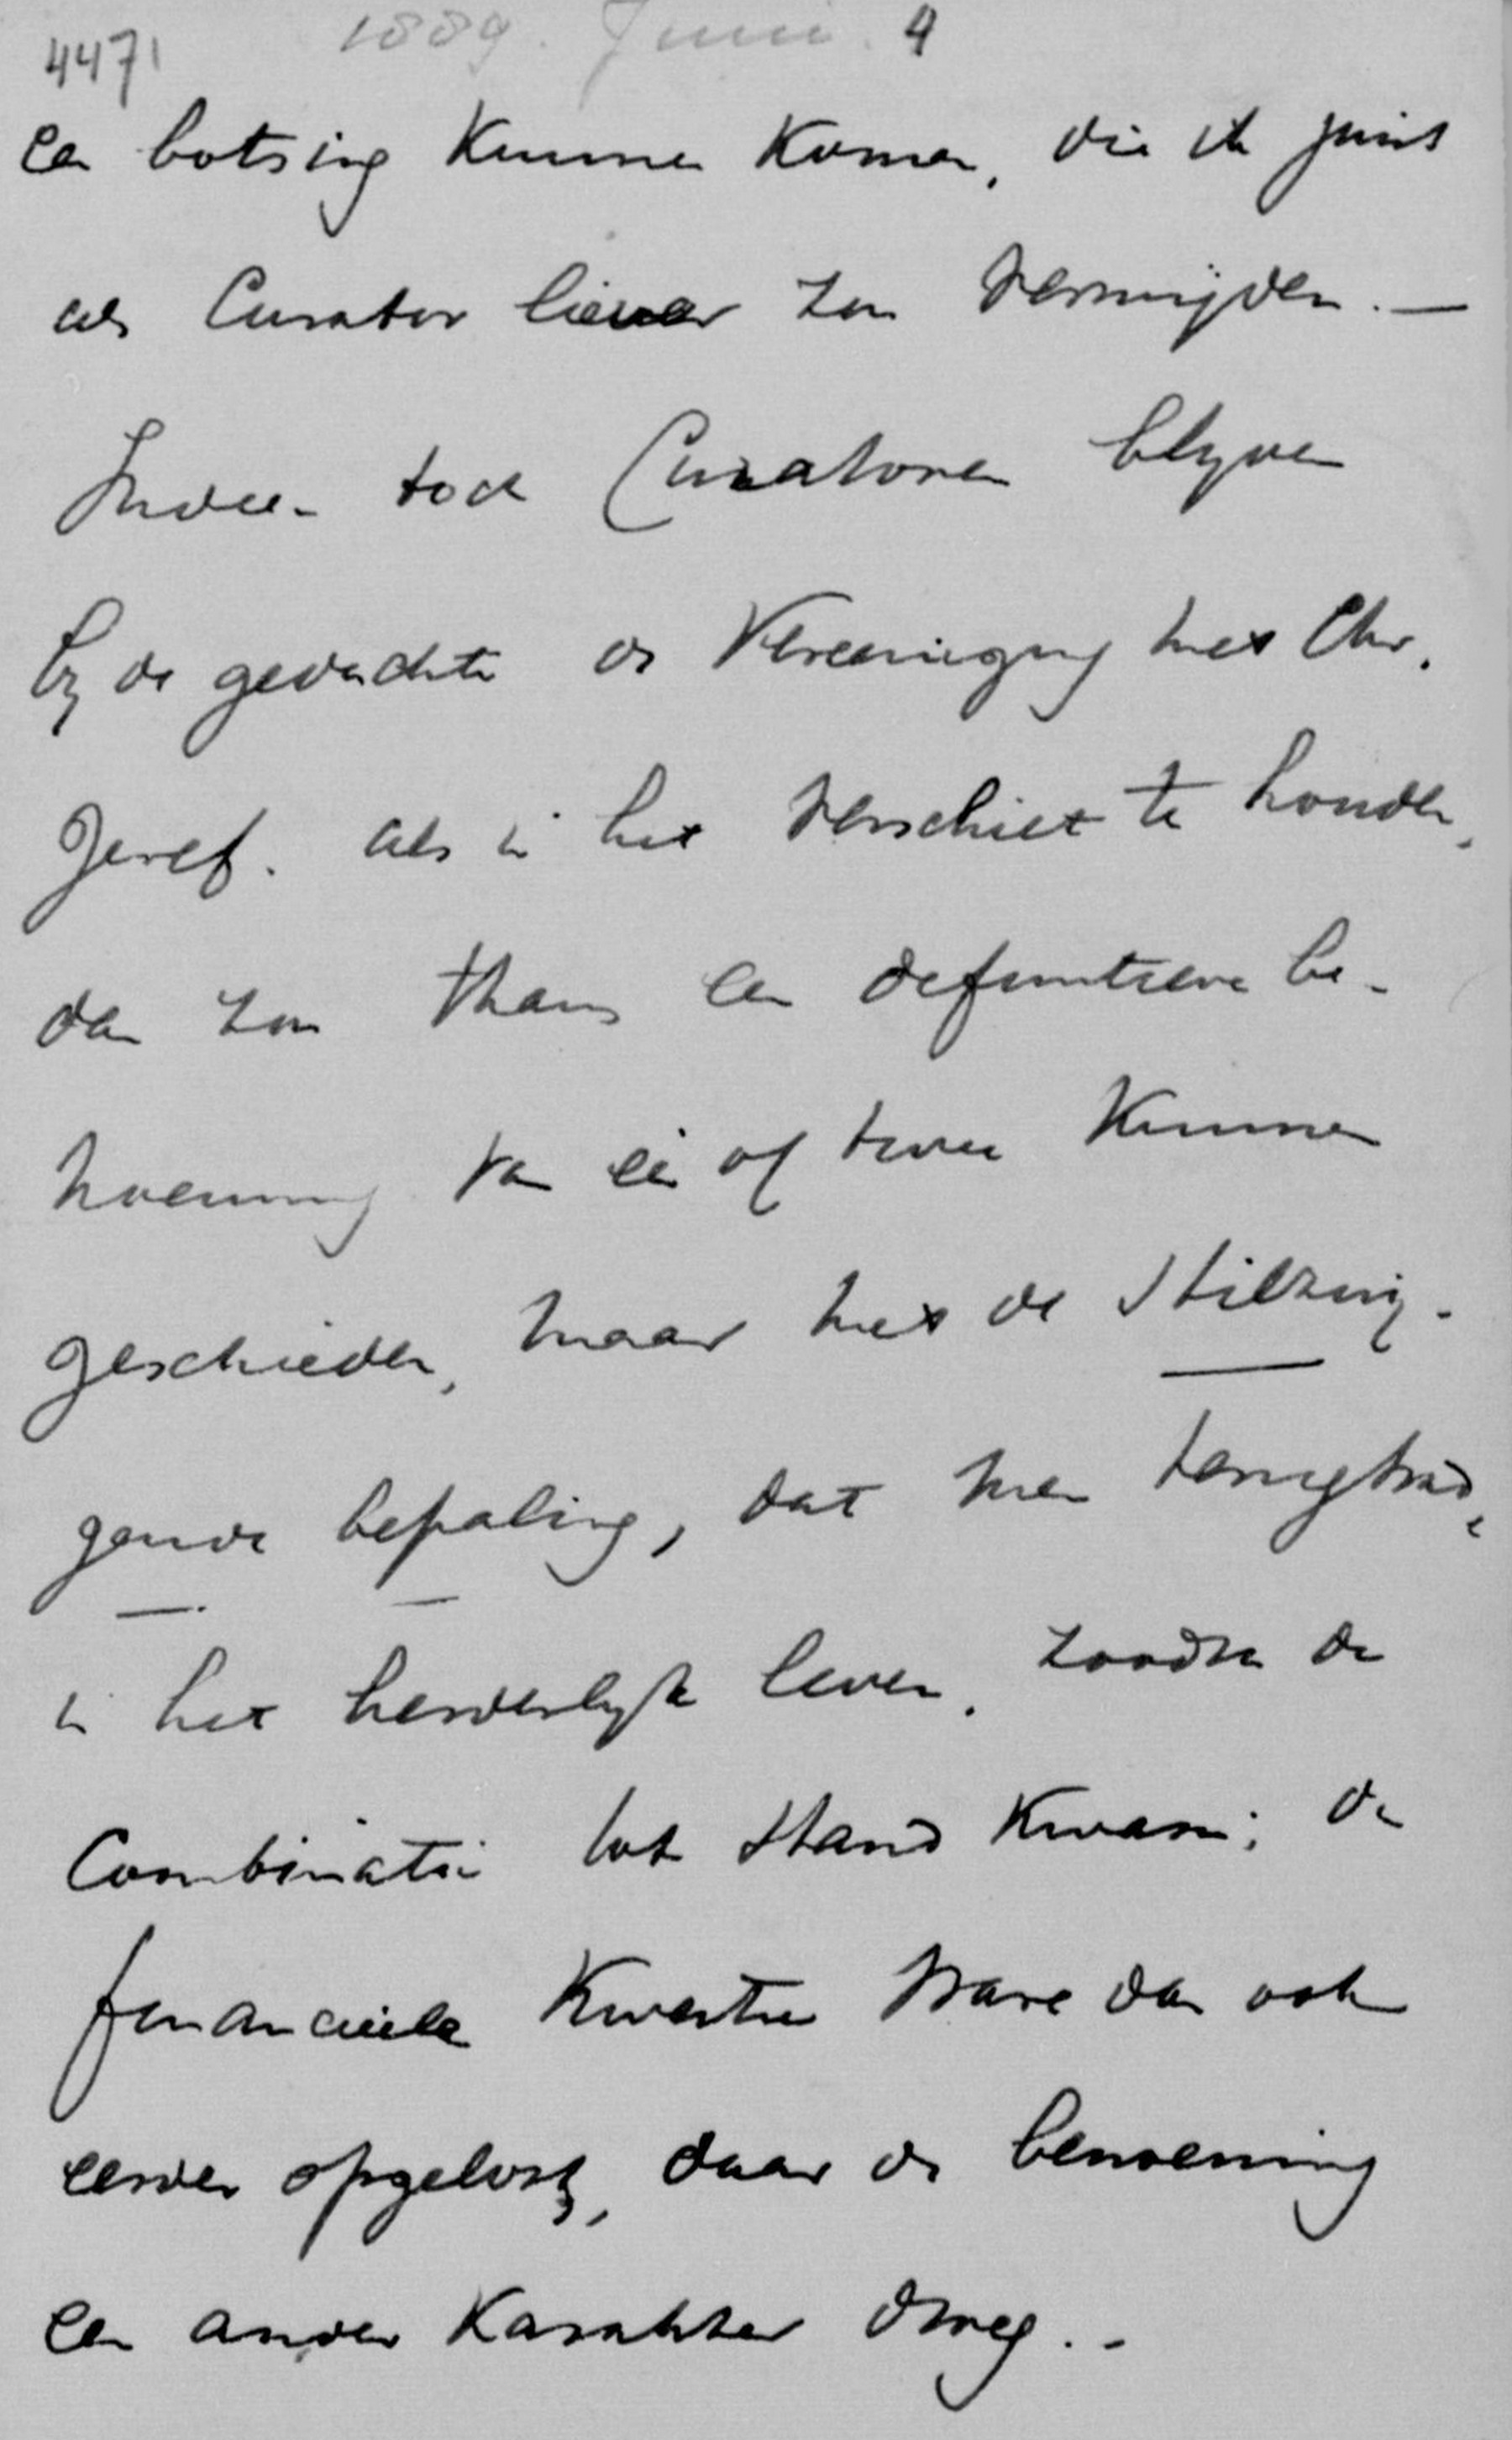 4471 1889. Juni. 4
een botsing kunnen komen, die ik juist
als Curator liever zou vermijden. —
Indien toch Curatoren blyven
by de gedachte de Vereeniging met Chr.
Geref. als in het verschiet te houden,
dan zou thans een definitieve be-
noeming van één of twee kunnen
geschieden, maar met de stilzwij-
gende bepaling, dat men terugtrad,
in het herderlyk leven, zoodra de
Combinatie tot stand kwam; de
financieele kwestie ware dan ook
eerder opgelost, daar de benoeming
een ander karakter droeg. -